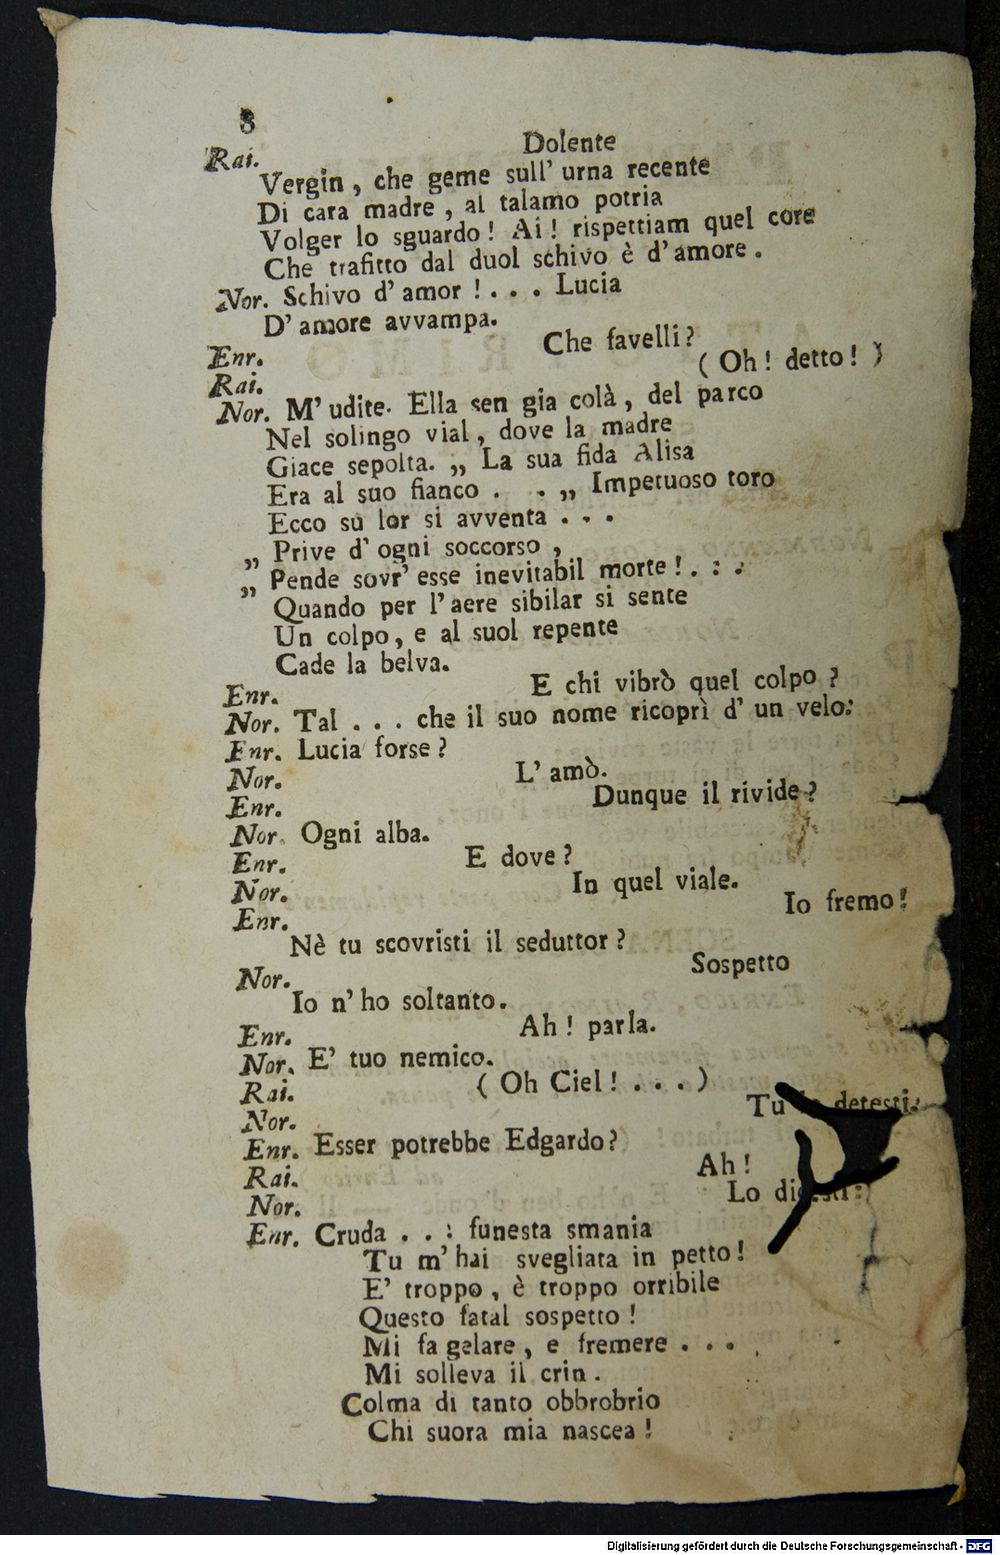 8
Rai. Dolente
Vergin, che geme sull' urna recente
Di cara madre, al talamo potria
Volger lo sguardo! Ai! rispettiam quel core
Che trafitto dal duol schivo è d'amore.
Nor. Schivo d'amor!... Lucia
D'amore avvampa.
Enr. Che favelli?
Rai. (Oh! detto!)
Nor. M'udite. Ella sen gia colà, del parco
Nel solingo vial, dove la madre
Giace sepolta. „ La sua fida Alisa
Era al suo fianco . . „ Impetuoso toro
Ecco su lor si avventa...
„ Prive d'ogni soccorso,
„ Pende sovr' esse inevitabil morte!. : .
Quando per l'aere sibilar si sente
Un colpo, e al suol repente
Cade la belva.
Enr. E chi vibrò quel colpo?
Nor. Tal... che il suo nome ricoprì d'un velo.
Enr. Lucia forse?
Nor. L'amò.
Enr. Dunque il rivide?
Nor. Ogni alba.
Enr. E dove?
Nor. In quel viale.
Enr. Io fremo!
Nè tu scovristi il seduttor?
Nor. Sospetto
Io n'ho soltanto.
Enr. Ah! parla.
Nor. E' tuo nemico.
Rai. (Oh Ciel!...)
Nor. Tu detesti.
Enr. Esser potrebbe Edgardo?
Rai. Ah!
Nor. Lo
Enr. Cruda . . : funesta smania
Tu m'hai svegliata in petto!
E' troppo, è troppo orribile
Questo fatal sospetto!
Mi fa gelare, e fremere...
Mi solleva il crin.
Colma di tanto obbrobrio
Chi suora mia nascea!
Digitalisierung gefördert durch die Deutsche Forschungsgemeinschaft - DFG